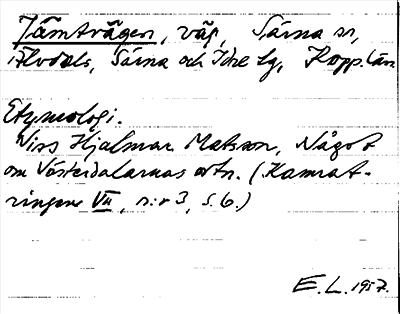 Jämtvägen, väg, Särna sn,
Älvdals, Särna och Idre tg, Kopp. län
Etymologi.
Niss Hjalmar Matson, Något
om Västerdalarnas ortn. (Kamrat-
ringen VII, n:r 3, s. 6.)
E. L. 1957.